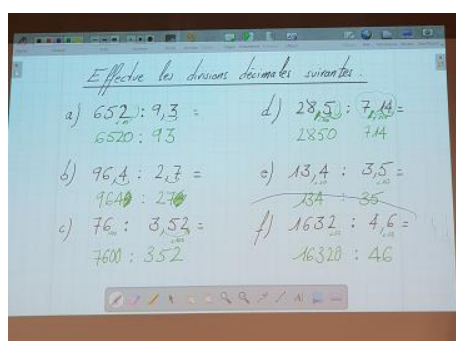 Effectue les divisions décimales suivantes.
a) 652 : 9,3 =
6520 : 93
b) 96,4 : 2,7 =
964 : 27
c) 76 : 3,52 =
7600 : 352
d) 28,5 : 7,14 =
2850 714
e) 13,4 : 3,5 =
134 : 35
f) 1632 : 4,6 =
16320 : 46